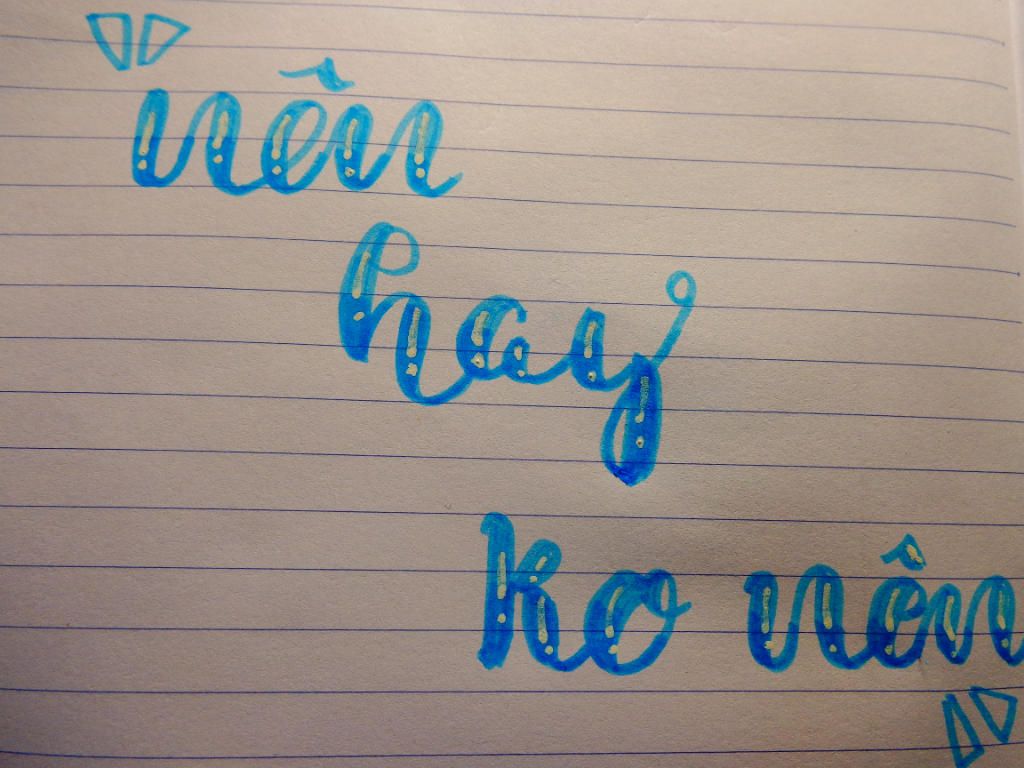 "nên
hay
ko nên"